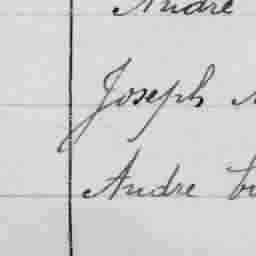 André
Joseph
Andre